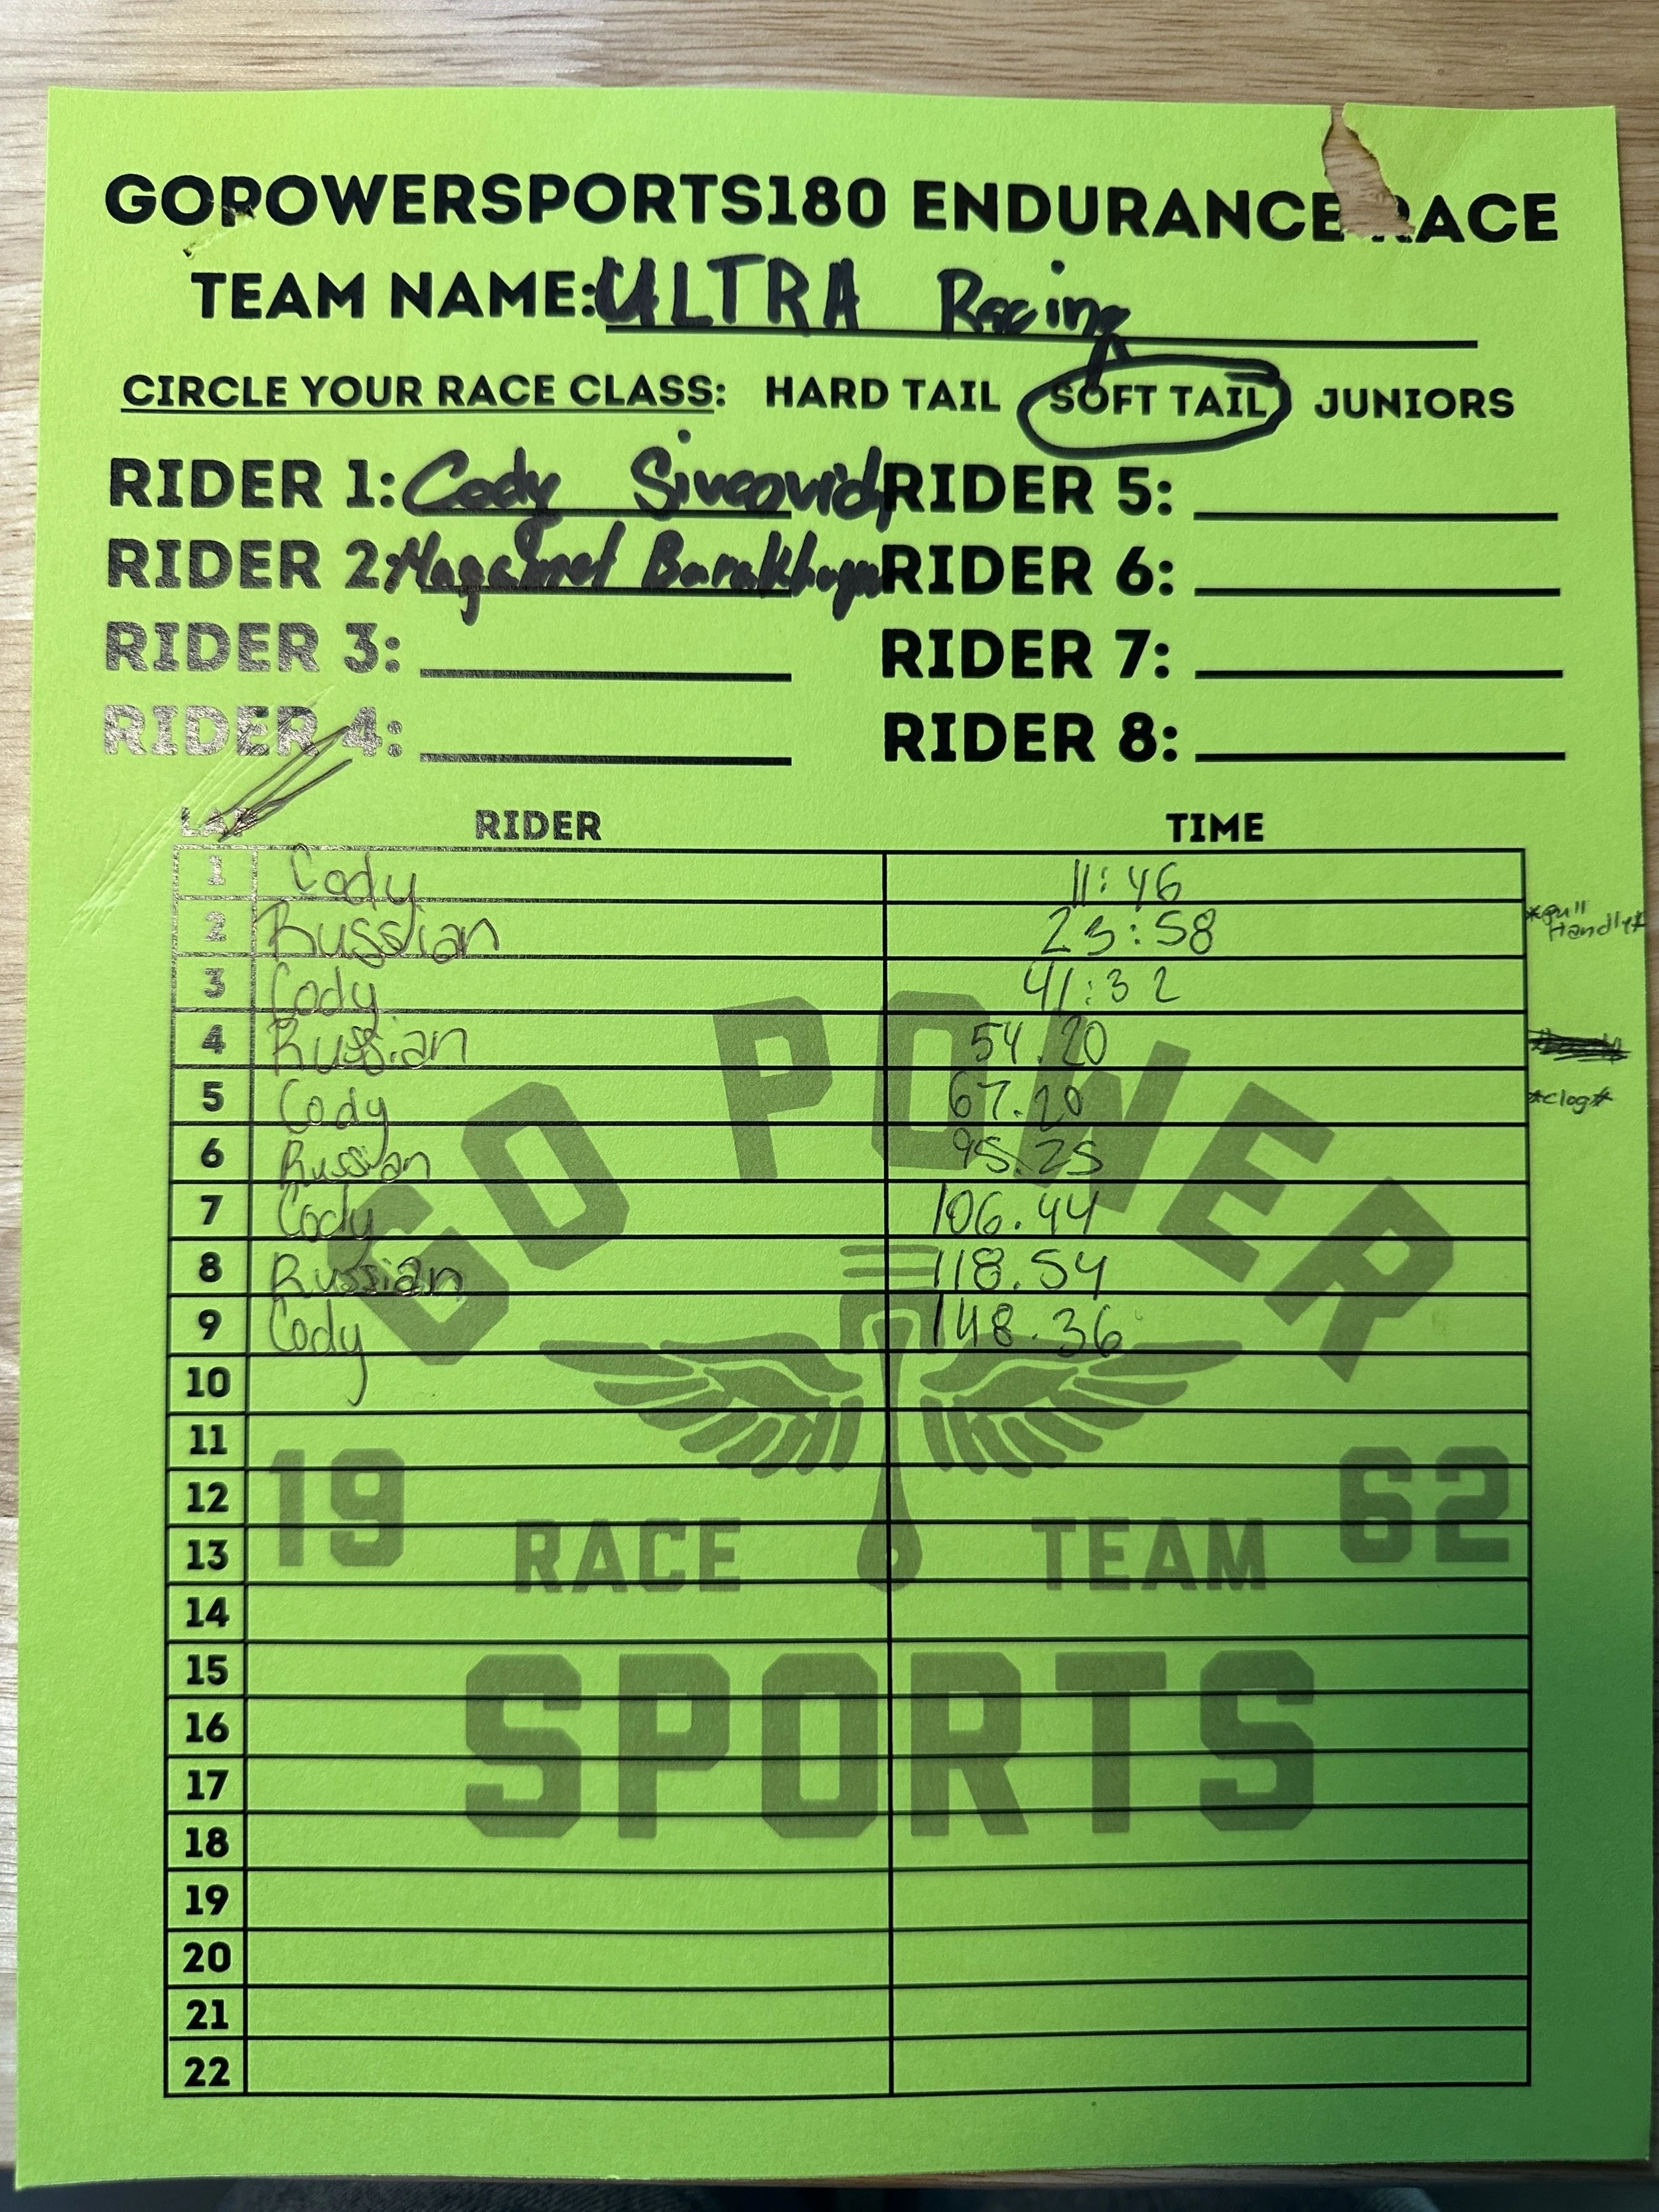 GOPOWERSPORTS180 ENDURANCE RACE
TEAM NAME: ULTRA Racing
CIRCLE YOUR RACE CLASS: HARD TAIL SOFT TAIL JUNIORS
RIDER 1: Cody RIDER 5:
RIDER 2: RIDER 6:
RIDER 3: RIDER 7:
RIDER 4: RIDER 8:
LAP RIDER TIME
1 Cody 11:46
2 Russian 23:58 *pull
Handly*
3 Cody 41:32
4 Russian 54.20
5 Cody 67.20 *clog*
6 Russian 95.25
7 Cody 106.44
8 Russian 118.54
9 Cody 148.36
10
11
12
13
14
15
16
17
18
19
20
21
22
GO POWER
19 62
RACE TEAM
SPORTS